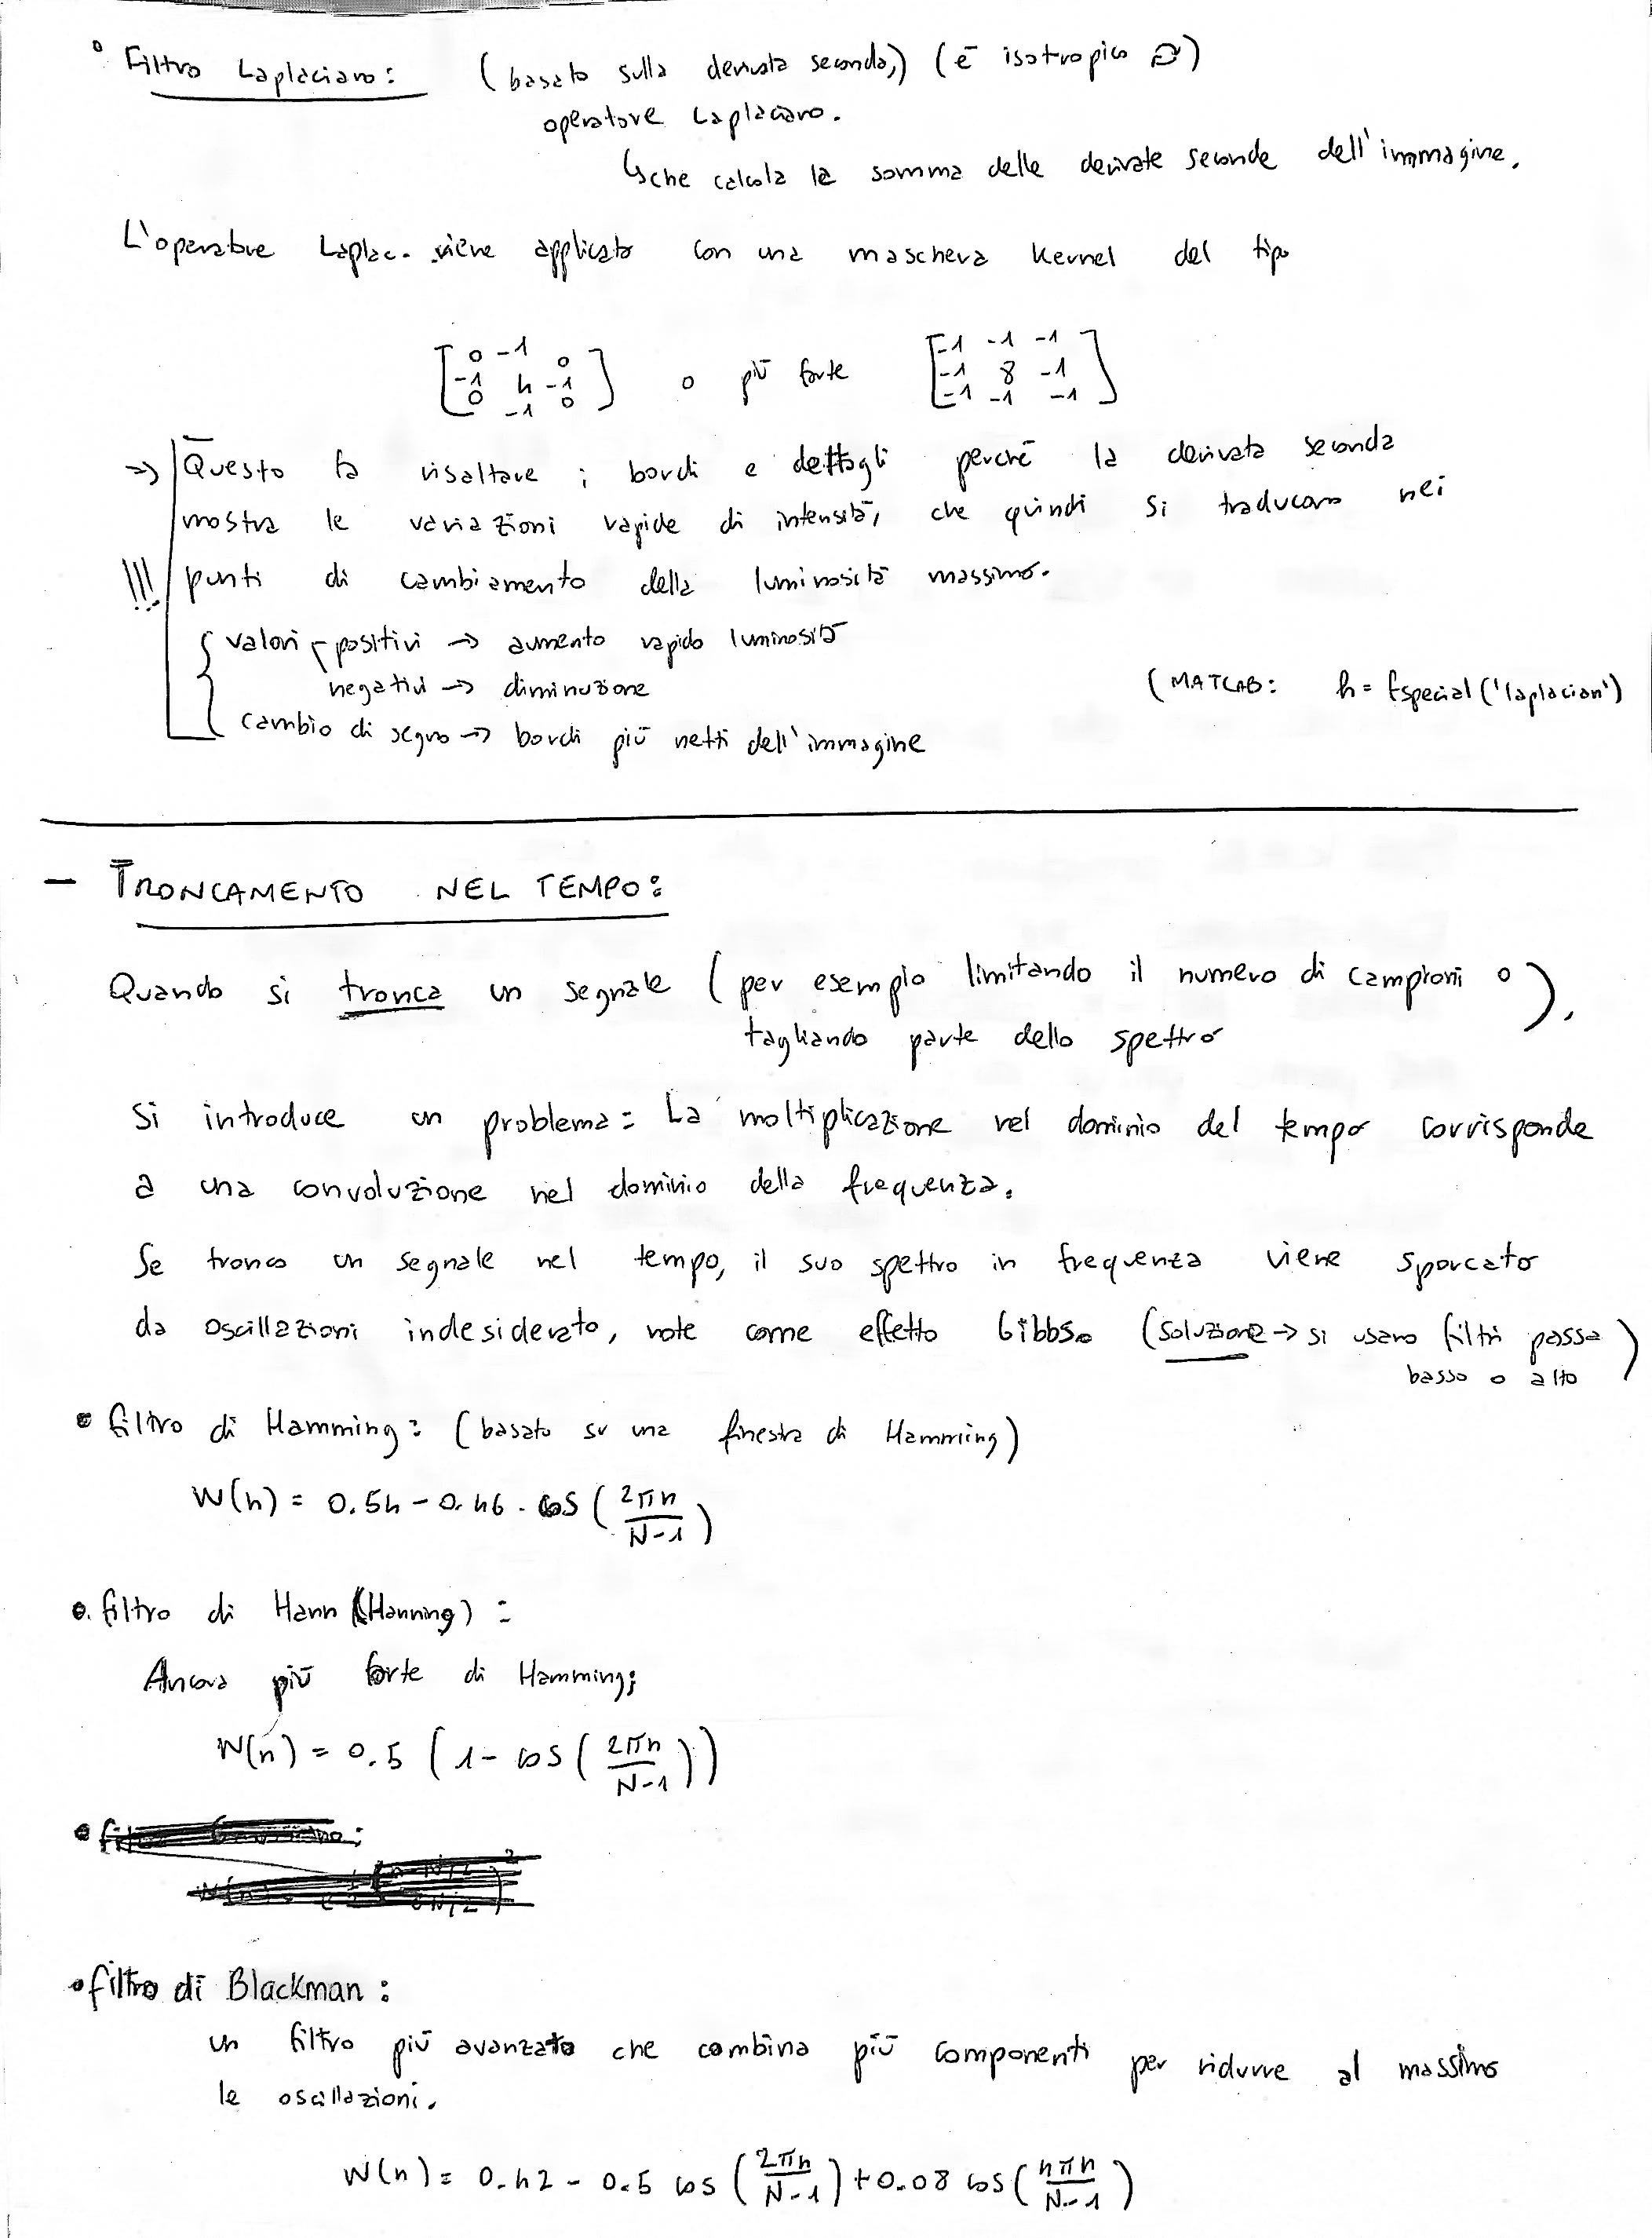 ° Filtro Laplaciano: (basato sulla derivata seconda,) (è isotropico)
operatore Laplaciano.
↳che calcola la somma delle derivate seconde dell'immagine.
L'operatore Laplac. viene applicato con una maschera kernel del tipo
[0 -1 0
-1 4 -1
0 -1 0] o più forte [-1 -1 -1
-1 8 -1
-1 -1 -1]
=> Questo fa risaltare i bordi e dettagli perché la derivata seconda
mostra le variazioni rapide di intensità, che quindi si traducono nei
!!! punti di cambiamento della luminosità massimo.
{ valori positivi → aumento rapido luminosità
negativi → diminuzione
(MATLAB: h = fspecial('laplacian')
cambio di segno → bordi più netti dell'immagine
- TRONCAMENTO NEL TEMPO:
Quando si tronca un segnale (per esempio limitando il numero di campioni o
tagliando parte dello spettro),
si introduce un problema: La moltiplicazione nel dominio del tempo corrisponde
a una convoluzione nel dominio della frequenza.
Se tronco un segnale nel tempo, il suo spettro in frequenza viene sporcato
da oscillazioni indesiderato, note come effetto Gibbs. (soluzione → si usano filtri passa
basso o alto)
• filtro di Hamming: (basato su una finestra di Hamming)
W(n) = 0.54 - 0.46 · cos(2πn/N-1)
• filtro di Hann (Hanning):
Ancora più forte di Hamming;
W(n) = 0.5 (1 - cos(2πn/N-1))
• filtro di Blackman:
un filtro più avanzato che combina più componenti per ridurre al massimo
le oscillazioni.
W(n) = 0.42 - 0.5 cos(2πn/N-1) + 0.08 cos(4πn/N-1)